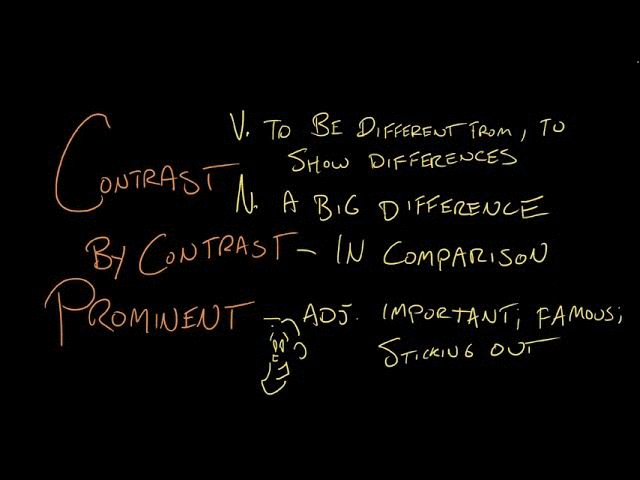 CONTRAST V. TO BE DIFFERENT FROM, TO
SHOW DIFFERENCES
N. A BIG DIFFERENCE
BY CONTRAST – IN COMPARISON
PROMINENT – ADJ. IMPORTANT; FAMOUS;
STICKING OUT